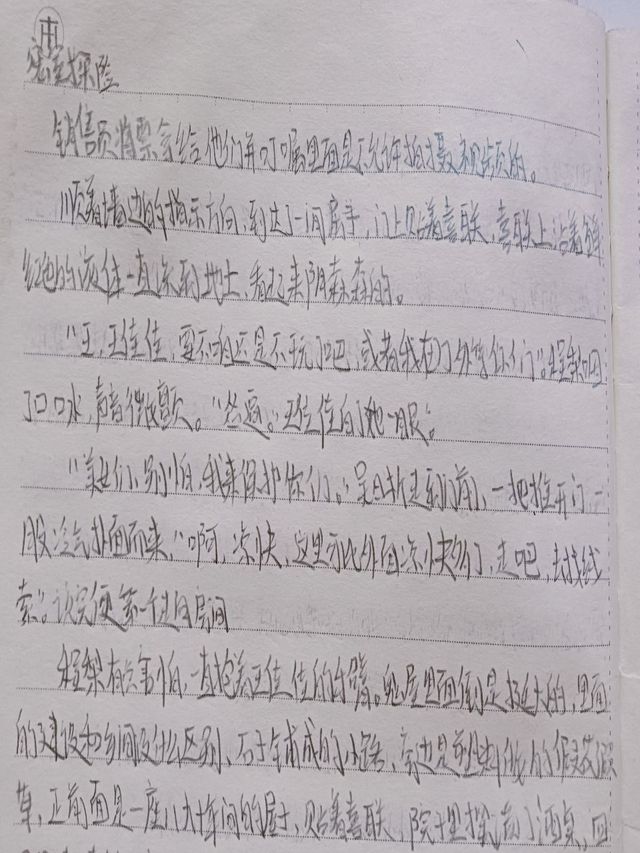 密室探险
销售员将票拿给他们并叮嘱里面是不允许拍摄视频的。
顺着墙边的指示方向,到达了一间房子,门上贴着喜联,喜联上沾着鲜
红色的液体一直流到地上,看起来阴森森的。
"王,王佳佳,要不咱还是不玩了吧,或者我在门外等你们"。程梨咽
了口口水,声音微颤。"怂逼。"王佳佳白了她一眼。
"美女们,别怕,我来保护你们。"吴 走到门前,一把推开门,一
股冷气扑面而来,"啊,凉快,这里可比外面凉快多了,走吧,去找线
索"。说完便第一个进入房间
程梨有点害怕,一直抱着王佳佳的手臂。鬼屋里面倒是挺大的,里面
的建设和乡间没什么区别,石子铺成的小路,旁边是塑料做的假花假
草,正前面是一座八九十年间的屋子,贴着喜联,院子里摆满了酒桌,回